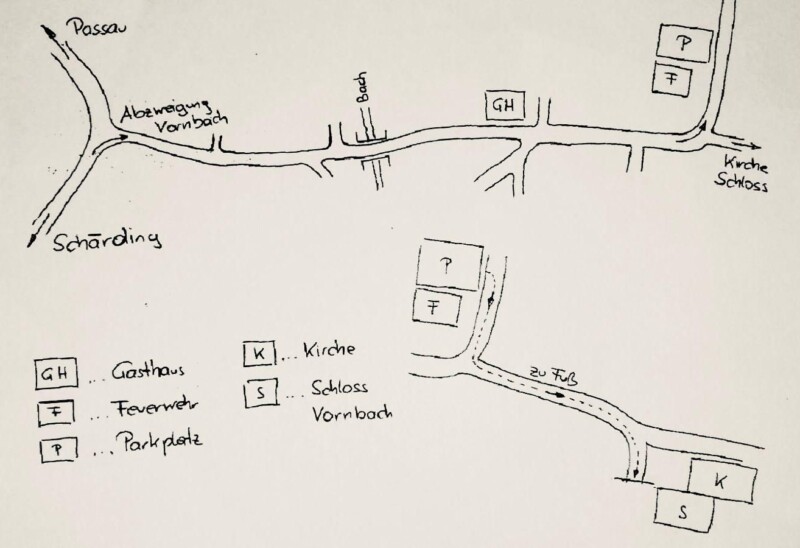 Passau
Abzweigung
Vornbach
Bach
GH
P
F
Kirche
Schloss
Schärding
P
F
zu Fuß
K
S
GH ... Gasthaus
F ... Feuerwehr
P ... Parkplatz
K ... Kirche
S ... Schloss
Vornbach